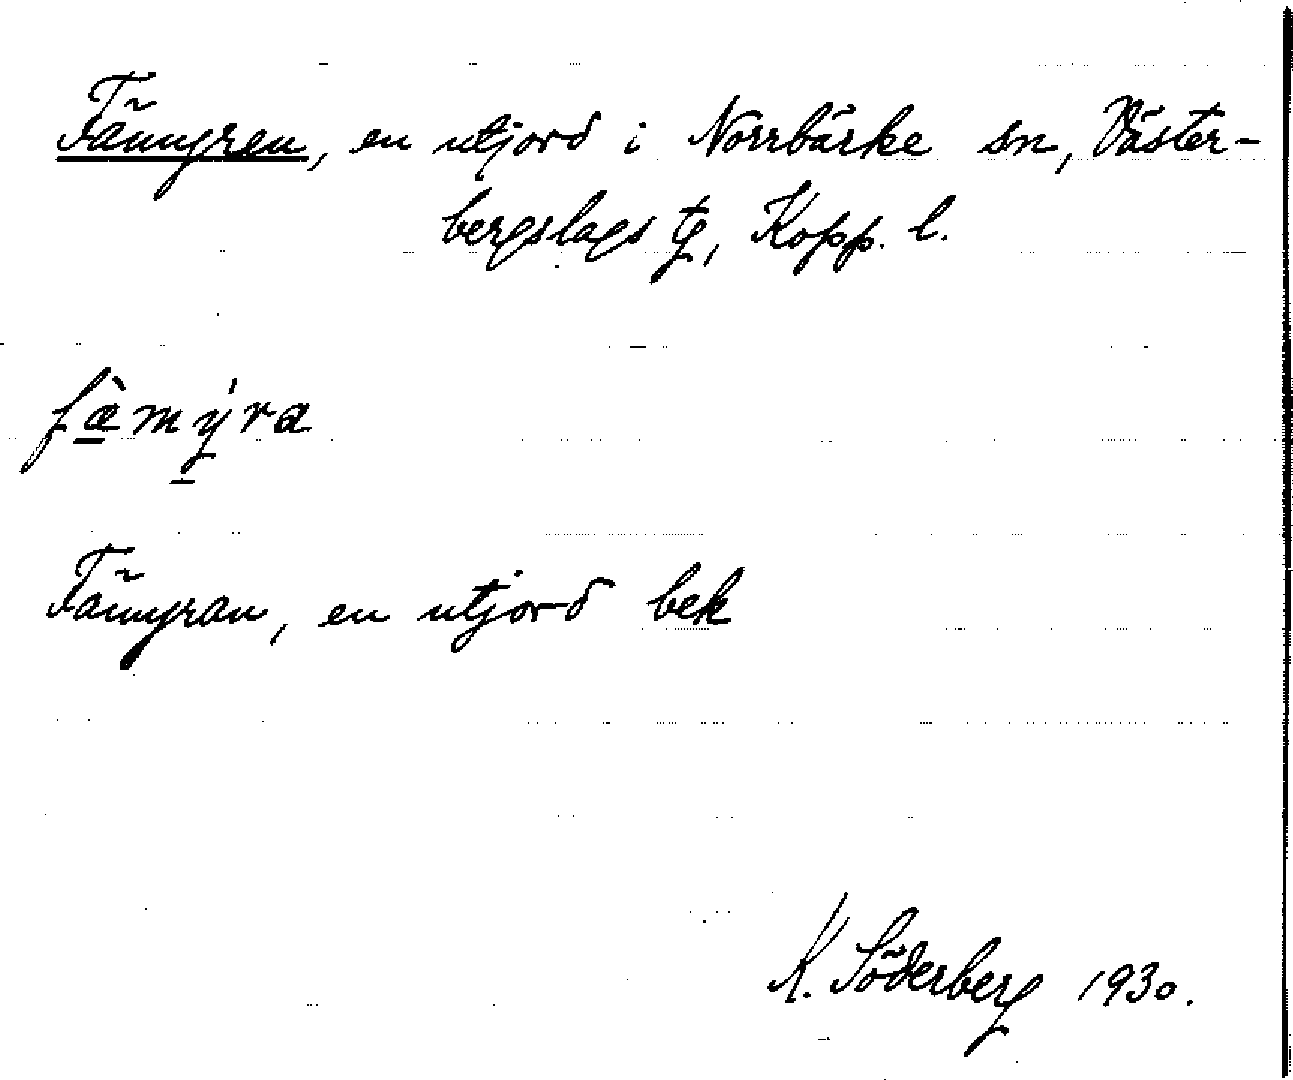 Fämyren, en utjord i Norrbärke sn, Väster-
bergslags tg, Kopp. l.
fæ̀mýra
Fämyran, en utjord bek
K. Söderberg 1930.